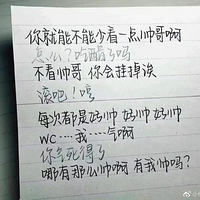 你就能不能少看一点帅哥啊
怎么？吃醋了吗
不看帅哥 你会挂掉诶
滚吧！嘻
每次都是好帅 好帅 好帅
WC····我····气啊
你气死得了
哪有那么帅啊 有我帅吗？